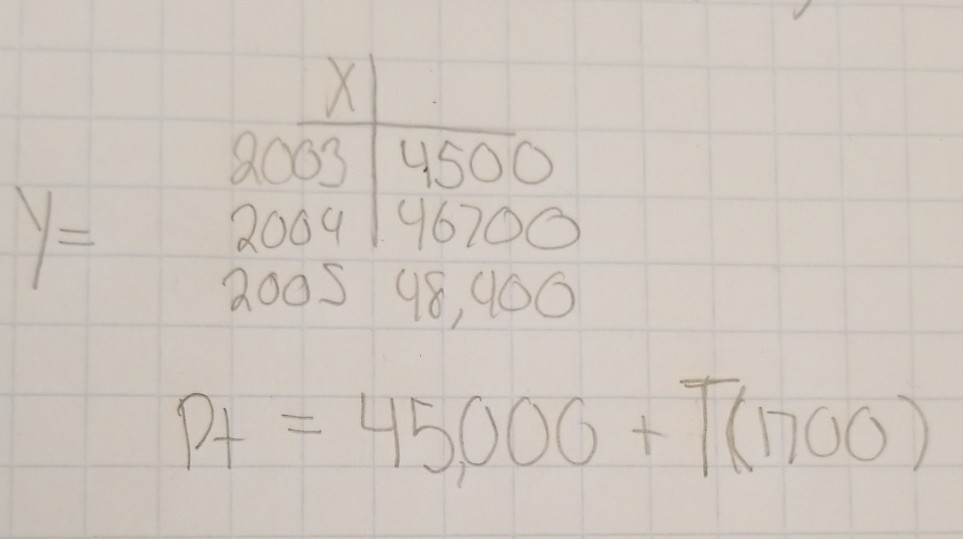 X
2003 4500
Y= 2004 46700
2005 48,400
Pt = 45,000 + T(1700)